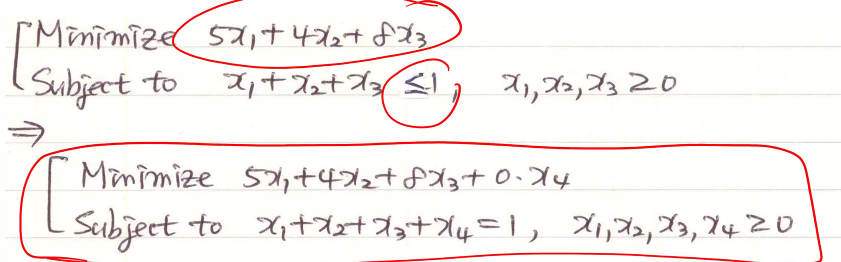 Minimize 5x₁+4x₂+8x₃
Subject to x₁+x₂+x₃ ≤1, x₁,x₂,x₃ ≥0
⇒
Minimize 5x₁+4x₂+8x₃+0·x₄
Subject to x₁+x₂+x₃+x₄=1, x₁,x₂,x₃,x₄ ≥0